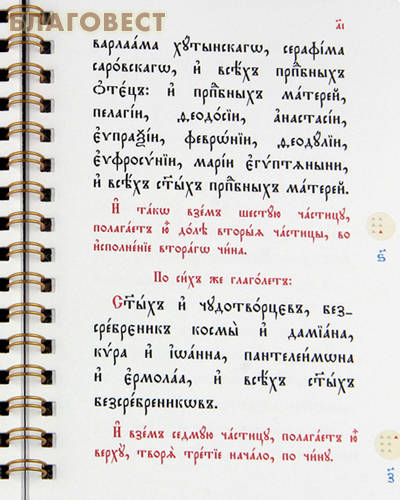 БЛАГОВЕСТ
а҃і
варлаа́ма хꙋты́нскагѡ, серафі́ма
саро́вскагѡ, и҆ всѣ́хъ прпⷣбныхъ
ѻ҆те́цъ: и҆ прпⷣбныхъ ма́терей,
пелагі́и, ѳеодо́сїи, а҆настасі́и,
є҆ѵпраѯі́и, феврѡ́нїи, ѳеодꙋ́лїи,
є҆ѵфросѵ́нїи, марі́и є҆гѵ́птѧныни,
и҆ всѣ́хъ ст҃ы́хъ прпⷣбныхъ ма́терей.
И҆ та́кѡ взе́мъ шестꙋ́ю части́цꙋ,
полага́етъ ю҆̀ до́лѣ вторы́ѧ части́цы, во
и҆сполне́нїе втора́гѡ чи́на.
По си́хъ же глаго́летъ:
Ст҃ы́хъ и҆ чꙋдотво́рцєвъ, без-
сре́бреникъ космы̀ и҆ дамїа́на,
кѵ́ра и҆ і҆ѡа́нна, пантелеи́мѡна
и҆ є҆рмола́а, и҆ всѣ́хъ ст҃ы́хъ
безсре́бренникѡвъ.
И҆ взе́мъ седмꙋ́ю части́цꙋ, полага́етъ ю҆̀
верхꙋ̀, творѧ̀ тре́тїе нача́ло, по чи́нꙋ.
ѕ҃
з҃